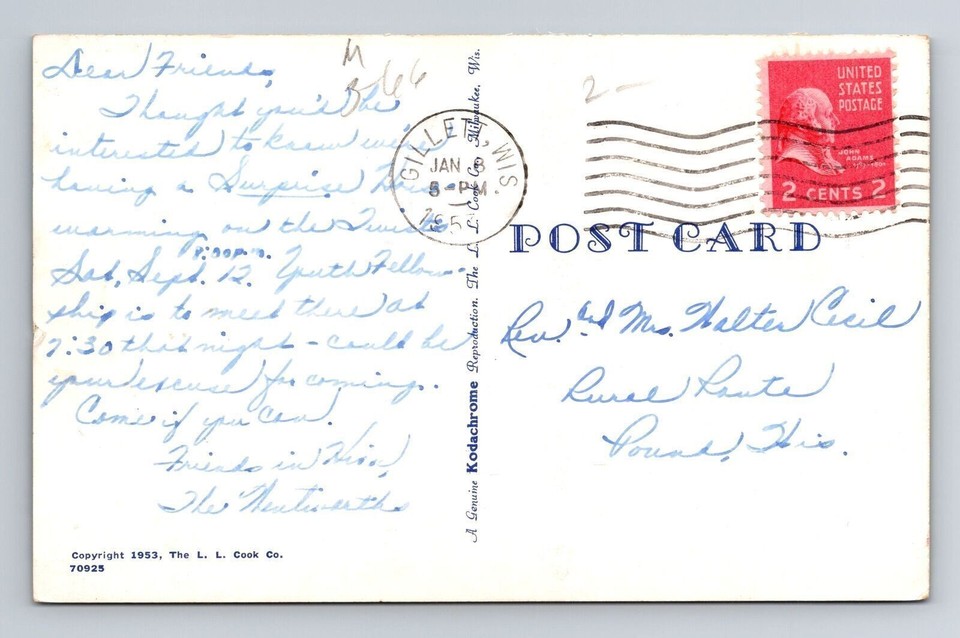 Dear Friends,
Thought you'd be
interested to know we're
having a Surprise house-
warming on the
Sat., Sept. 12. Youth Fellow-
ship is to meet there at
7:30 that night - could be
your excuse for coming.
Come if you can.
Friends in Him,
The Wentworths
Copyright 1953, The L. L. Cook Co.
70925
M
366
A Genuine Kodachrome Reproduction. The L. L. Cook Co., Milwaukee, Wis.
GILLETT, WIS.
JAN 8
PM
2-
UNITED
STATES
POSTAGE
JOHN
ADAMS
2 CENTS 2
POST CARD
Rev. and Mrs. Walter Cecil
Rural Route
Pound, Wis.